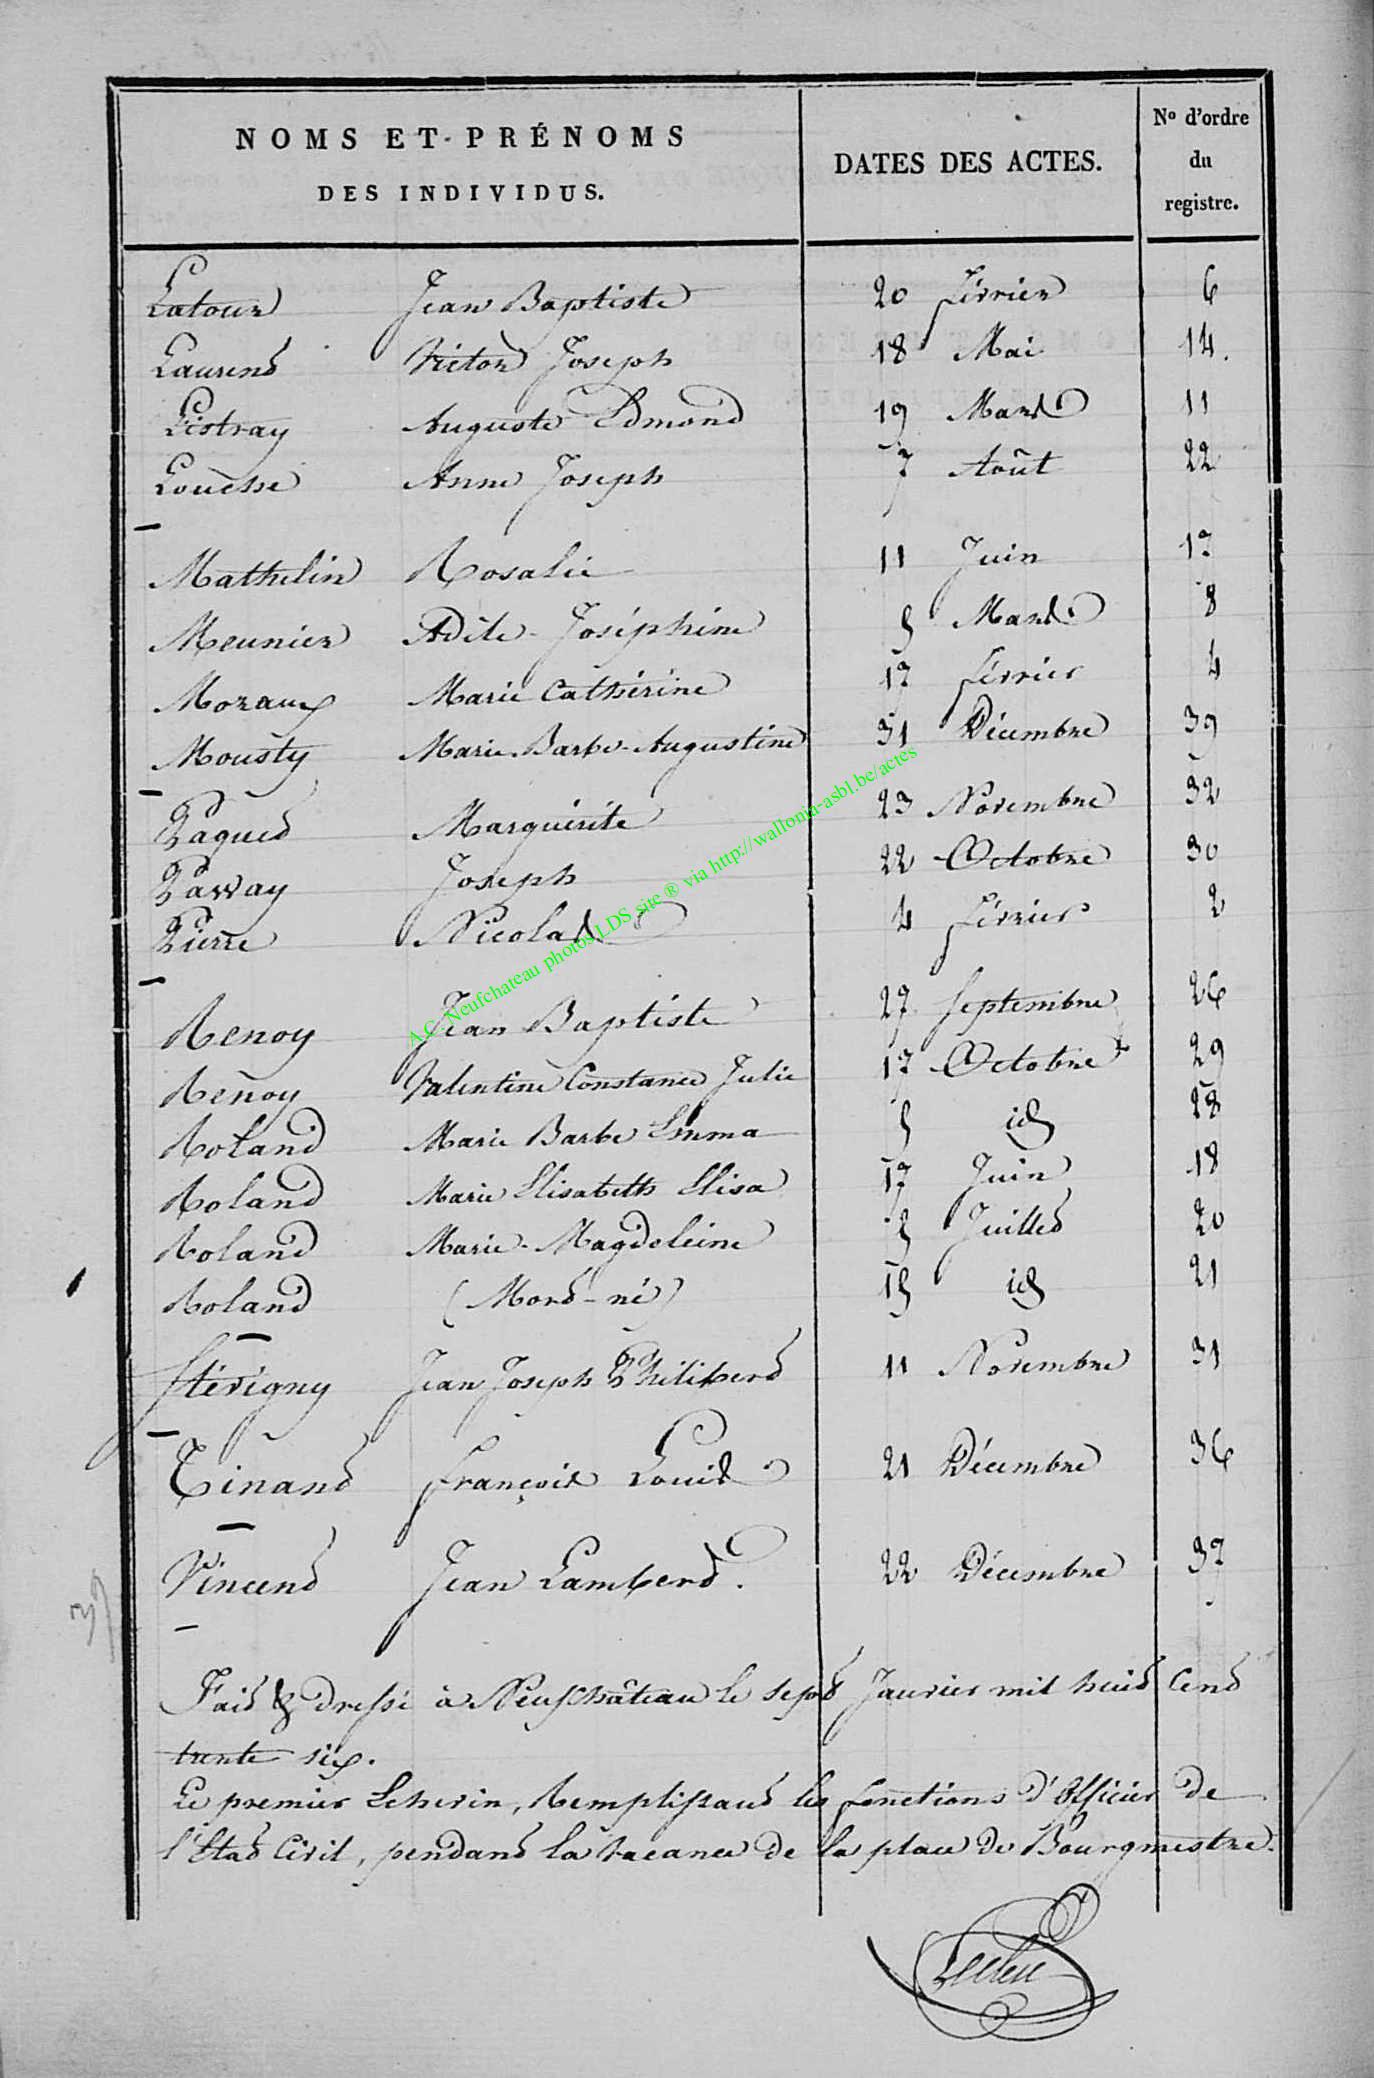 NOMS ET PRÉNOMS
DES INDIVIDUS.
DATES DES ACTES.
No d'ordre
du
registre.
Latour Jean Baptiste 20 février 6
Laurent Victor Joseph 18 Mai 14.
Listray Auguste Edmond 19 Mars 11
Louesse Anne Joseph 7 Août 22
Mathelin Rosalie 11 Juin 17
Meunier Adile Joséphine 5 Mars 8
Mozaux Marie Cathérine 17 février 4
Mousty Marie Barbe Augustine 31 Décembre 39
Paquet Marguérite 23 Novembre 32
Passay Joseph 22 Octobre 30
Pierre Nicolas 4 février 2
Renoy Jean Baptiste 27 septembre 26
Renoy Valentine Constance Julie 17 Octobre 29
Roland Marie Barbe Emma 5 id 28
Roland Marie Elisabeth Elisa 17 Juin 18
Roland Marie Magdeleine 5 Juillet 20
Roland (Mort-né) 15 id 21
Stévigny Jean Joseph Philibert 11 Novembre 31
Tinant François Louis 21 Décembre 36
Vincent Jean Lambert. 22 Décembre 37
39
Fait & dressé à Neufchâteau le sept Janvier mil huit Cent
trente six.
Le premier Echevin, Remplissant les fonctions d'Officier de
l'Etat Civil, pendant la vacance de la place de Bourgmestre.
Leclerc
A.C. Neufchateau photos LDS site ® via http://wallonia-asbl.be/actes